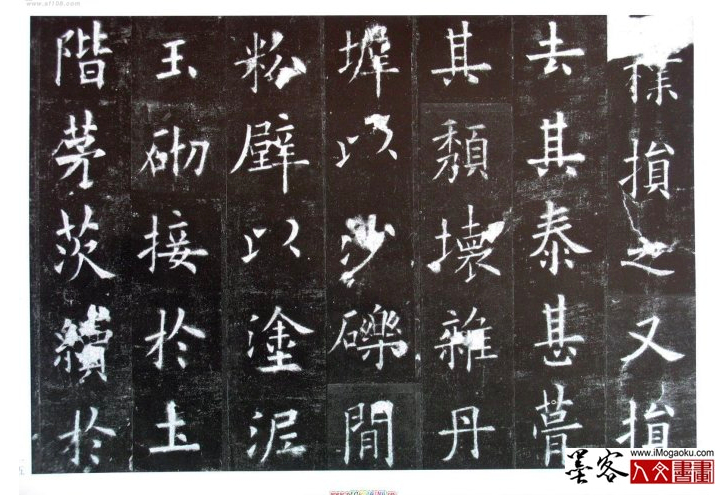 椽損之又損
去其泰甚葺
其頹壞雜丹
墀以沙礫間
粉壁以塗泥
玉砌接於土
階茅茨續於
www.iMogaoku.com
墨客
人文書畫